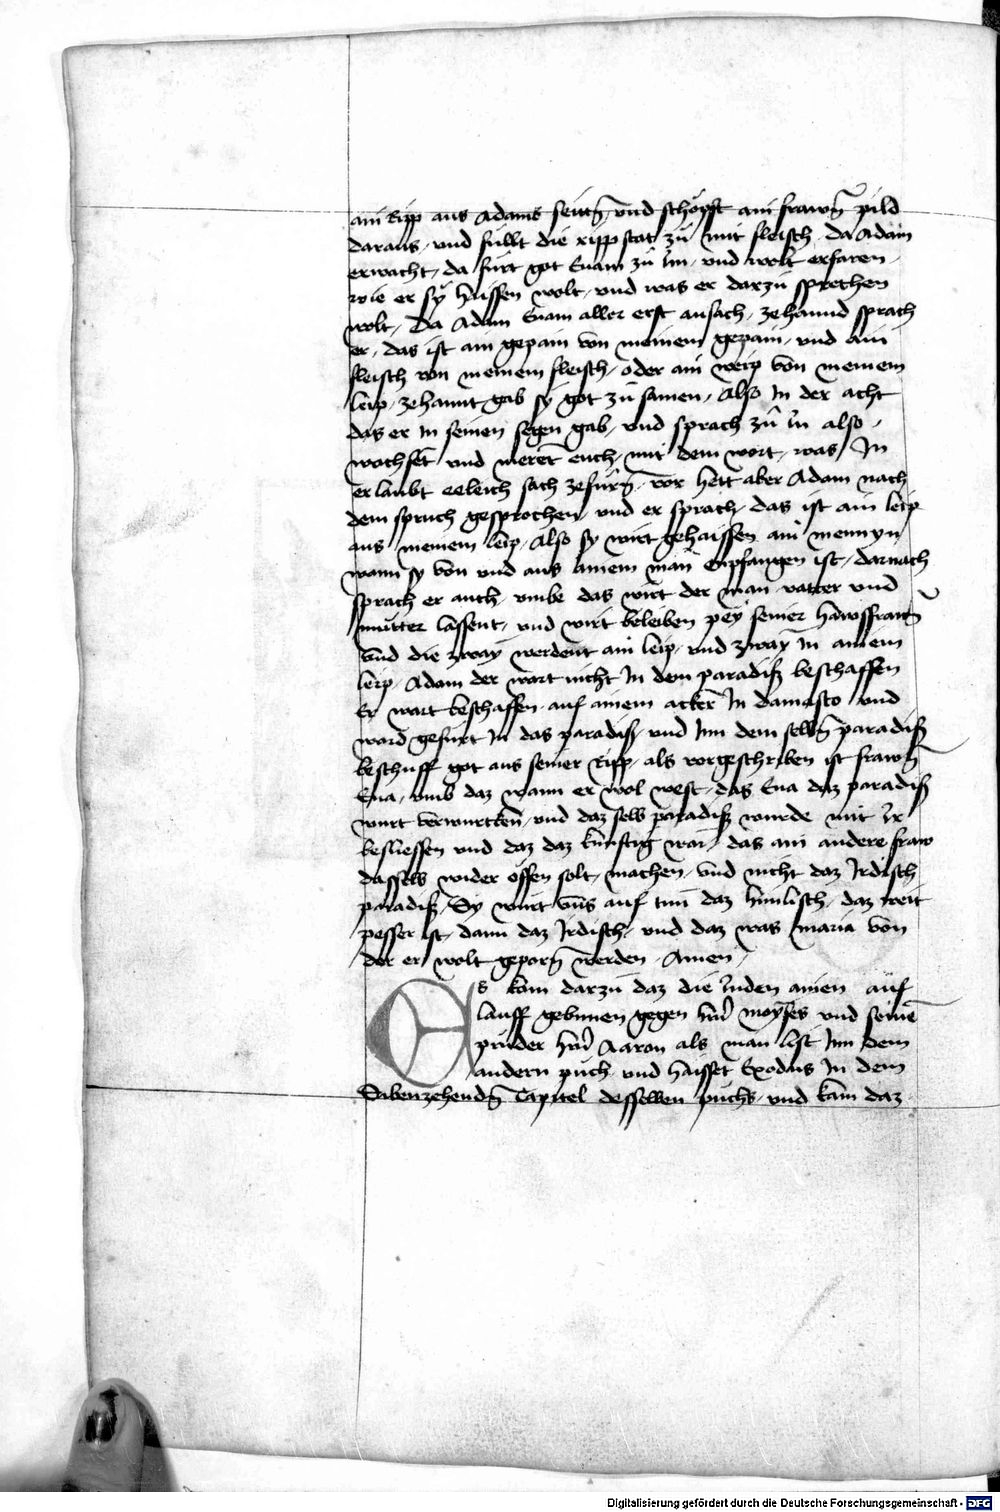 ain Ripp aus Adams seittn̄ und schöpft ain frawn̄ pild
daraus, und füllt die ripp stat zü mit fleisch, da Adam
erwacht, da fürt got Euam zü Im, und wolt erfaren,
wie er sÿ haissen wolt, und was er darzü sprechen
wolt, Da Adam Euam aller erst ansach, zehannd sprach
er, das ist ain gepain von meinem gepain, und ain
fleisch von meinem fleisch, oder ain weip von meinem
leip, zehannt gab sÿ got zü samen, Also In der acht
das er In seinen segen gab, und sprach zü In also,
wachset und meret euch, mit dem wort, was In
erlaubt eeleich sach zefürn̄, vor hett aber Adam nach
dem spruch gesprochen, und er sprach, das ist ain leip
aus meinem leip, Also sy wirt gehaissen ain mennyn
wann sy von und aus ainem man enpfangen ist, darnach
sprach er auch, umbe das wirt der man vatter und
mutter lassent, und wirt beleiben peÿ seiner hawsfrawn̄
und die zwaÿ werdent ain leip, und zwaÿ In ainem
leip, Adam der wart nicht In dem paradiß beschaffen
Er wart beschaffen auf ainem acker In damasco und
ward gefürt In das paradiß und Inn dem selbn̄ paradiß
beschuff got aus seiner Ripp, als vorgeschriben ist frawn̄
Eua, umb daz wann er wol west, das Eua daz paradiß
wurt verwurcken, und daz selb paradiß wurde mit Ir
besliessen und daz daz künftig war, das ain andere fraw
dasselb wider offen solt, machen, und nicht daz Irdisch
paradiß, Sy wurt uns auf tun daz himlisch, daz weit
pesser ist, dann daz Irdisch, und daz was Maria von
der er wolt geporn̄ werden, Amen,
Es kam darzü daz die Iuden ainen auf
lauff gebunnen gegen hern̄ moyses und seinē
prüder hern̄ Aaron als man list Inn dem
andern püch, und haisset Exodus In dem
Sibenzehendn̄ Capitel desselben püchs, und kam daz
Digitalisierung gefördert durch die Deutsche Forschungsgemeinschaft - DFG